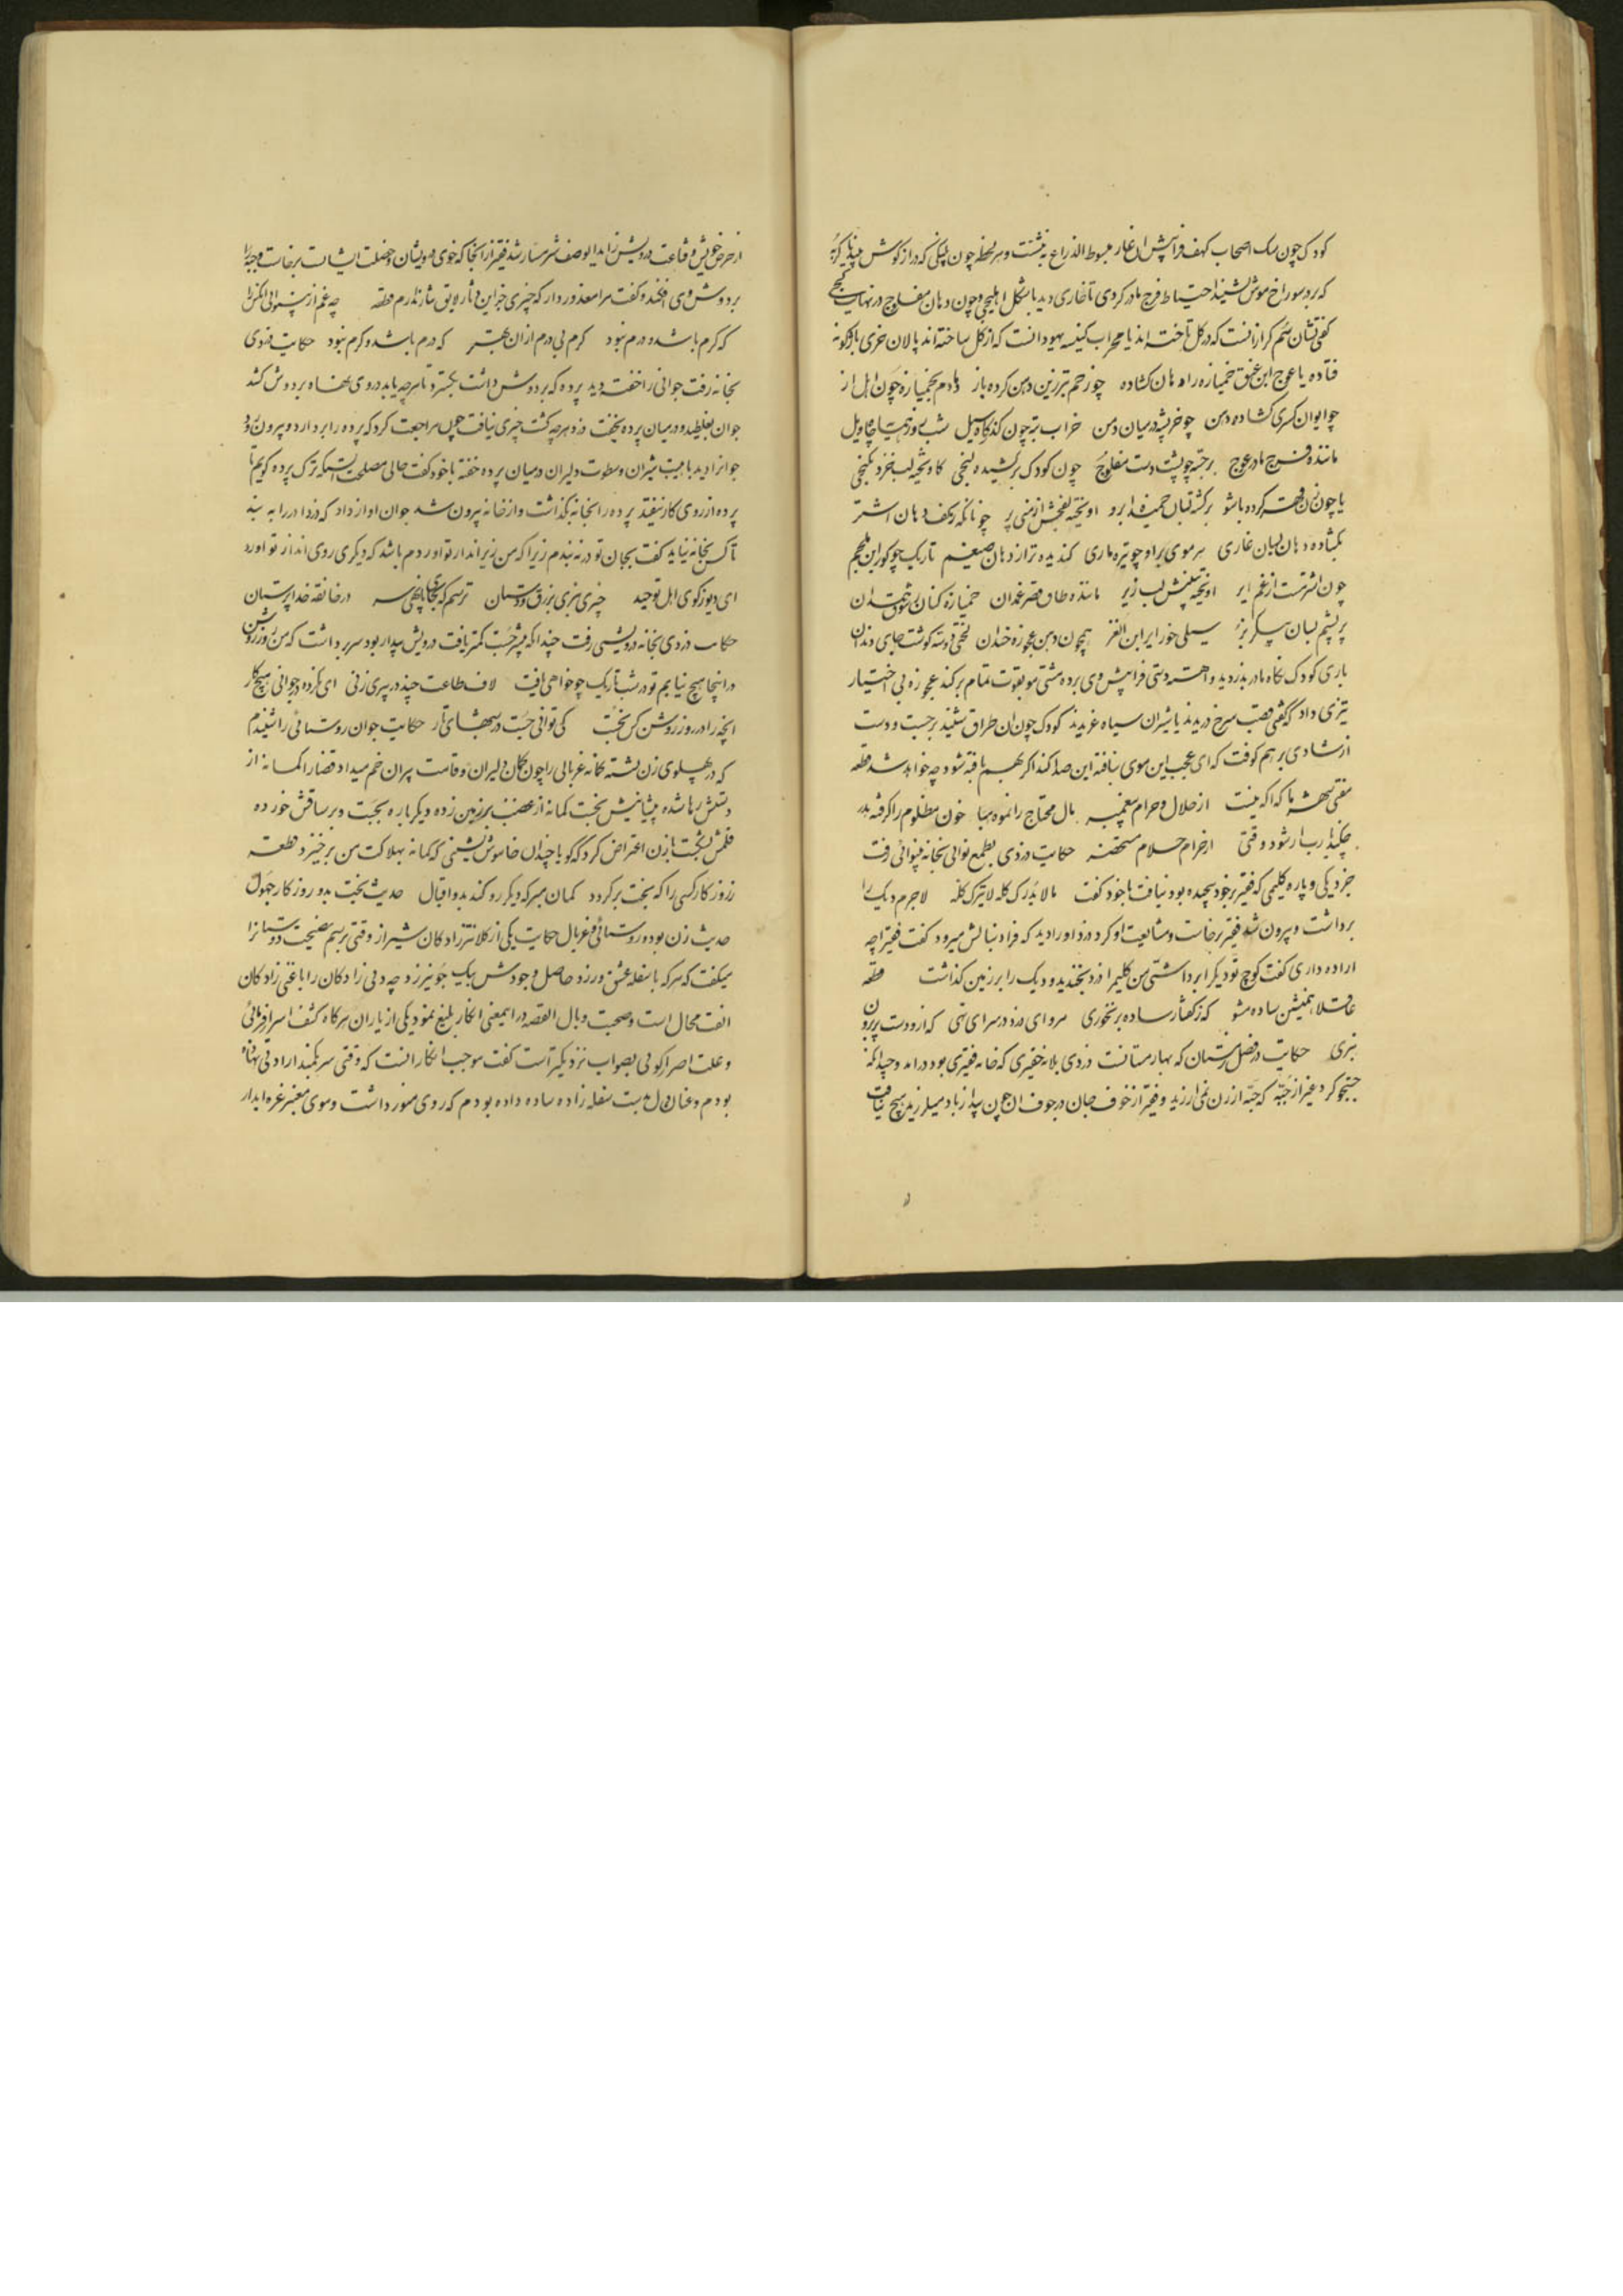 کودک چون سک اصحاب کهف فراپیش ان غار مبسوط الذراع بنشست و هر لحظه چون پلنکی که در از کوش
که بر در سوراخ موش نشیند احتیاط فرج مادر کردی تا غاری دید باشکل اهلیلجی و چون دهان مفلوج در نهایت کجی
کفتی نشان سم کراز انست که در کل تاخته اند یا محراب کنیسه یهود انست که از کل ساخته اند پالان خری باژکونه
فتاده یا عوج ابن عنق خمیازه راه دهان کشاده چو زخم تبرزین دهن کرده باز دمادم بخمیازه چون اهل از
چو ایوان کسری کشاده دهن چو خرپشه در میان دمن خراب تر چون کذرکاه سیل شب و روز
ماننده فرج مادر عوج برجسته چو پشت دست مفلوج چون کودک برکشیده لنجی
یا چون زن قهر کرده باشو برکشته لبان خمیده ابرو اویخته لفجش از منی پر چونانکه زکف دهان اشتر
بکشاده دهان لبان غاری هر موی بر او چو تیره ماری کندیده تر از دهان ضیغم تاریک چو کور ابن ملجم
چون اشتر مست از غم ایر اویخته لب زیر ماننده طاق قصر غمدان خمیازه کنان
پر پشم لبان سیلی خور ایر ابن الغز همچون دهن عجوزه خندان لختی دوسه کوشت جای دندان
باری کودک نکاه مادر بدزدید و اهسته دستی فراپیش وی برده مشتی مو بقوت تمام برکند عجوزه بی اختیار
تیزی داد که کفتی قصب سرخ دریدند یا شیران سیاه غریدند کودک چون ان طراق شنید برجست و دست
از شادی بر هم کوفت که ای عجب این موی نبافته این صدا کند اکر بهم بافته شود چه خواهد شد قطعه
مفتی شهر ما که اکه نیست از حلال و حرام پیغمبر مال محتاج را نموده مباح خون مظلوم را کرفته هدر
رشود وقتی از حرام حکایت دزدی بطمع نوالی بخانه بینوائی رفت
جز دیکی و پاره کلیمی که فقیر بر خود پیچیده بود نیافت با خود کفت ما لا یدرک کله لا یترک کله لاجرم دیک را
برداشت و بیرون شد فقیر برخاست و مشایعت او کرد دزد او را دید که فرا دنبالش میرود کفت فقیرا چه
اراده داری کفت کوچ تو دیک را برداشتی من کلیم را دزد بخندید و دیک را بر زمین کذاشت قطعه
عاقلا همنشین ساده مشو که ز کفتار ساده برنخوری مرو ای دزد در سرای تهی که از و دست پر برون
نبری حکایت در فصل زمستان که بهار مستانست دزدی بلانه حقیری که خانه فقیری بود درامد و چندانکه
جستجو کرد غیر از جبه که حبه ارزن نمی ارزید و فقیر از خوف جان در جوف ان چون بید از باد میلرزید هیچ نیافت
از حرص خویش و قناعت درویش زاید الوصف شرمسار شد فقیر از انجا که خوی درویشان و خصلت ایشانست برخاست و جبه را
بر دوش وی افکند و کفت مرا معذور دار که چیزی جز این دثار لایق نثار ندارم قطعه چه غم از بینوائی انکس را
که کرم باشد و درم نبود کرم بی درم از ان بهتر که درم باشد و کرم نبود حکایت دزدی
بخانه رفت جوانی را خفته دید پرده که بر دوش داشت بکسترد تا هر چه یابد در وی نهاده بر دوش کشد
جوان بغلطید و در میان پرده بخفت دزد هر چه کشت چیزی نیافت چون مراجعت کرد که پرده را بردارد و بیرون رود
جوانرا دید با هیبت شیران و سطوت دلیران در میان پرده خفته با خود کفت حالی مصلحت انست که ترک پرده کویم تا
پرده از روی کار نیفتد پرده را بخانه بکذاشت و از خانه بیرون شد جوان اواز داد که دزدا در را به بند
تا کس بخانه نیاید کفت بجان تو در نه بندم زیرا که من زیرانداز تو اوردم باشد که دیکری روی انداز تو اورد
ای دیو ز کوی اهل توحید چیزی نبری بزرق و دستان ترسم که در خانقه خدا پرستان
حکایت دزدی بخانه درویشی رفت چندانکه بیشتر جست کمتر یافت درویش بیدار بود سر برداشت که من روز روشن
در اینجا هیچ نیابم تو در شب تاریک چه خواهی یافت لاف طاعت چند در پیری زنی ای نکرده در جوانی هیچ کار
انچه را در روز روشن کس نجست کی توانی جست در شبهای تار حکایت جوان روستائی را شنیدم
که در پهلوی زن نشسته کمانه غربالی را چون کمان دلیران و قامت پیران خم میداد قضا را کمانه از
دستش رها شده پیشانیش بخست کمانه از غضب بر زمین زده دیکر باره بجست و بر ساقش خورده
قلمش بشکست با زن اعتراض کرد که کویا چندان خاموش نشینی که کمانه بهلاکت من برخیزد قطعه
روزکار کسی را که بخت برکردد کمان مبر که دیکر رو کند بدو اقبال حدیث بخت بد و روزکار
حدیث زن بود و روستائی و غربال حکایت یکی از کلانترزادکان شیراز وقتی برسم نصیحت دوستانرا
میکفت که هر که با سفله عشق ورزد حاصل وجودش بیک جو نیرزد چه دنی زادکان را با غنی زادکان
الفت محال است و صحبت وبال القصه در اینمعنی انکار بلیغ نمود یکی از یاران هر کاه کشف اسرار فرمائی
و علت اصرار کوئی بصواب نزدیکتر است کفت موجب انکار انست که وقتی سر بکمند ارادتی نهاده
بودم و عنان دل بدست سفله زاده ساده داده بودم که روی منور داشت و موی معنبر غره ابدار